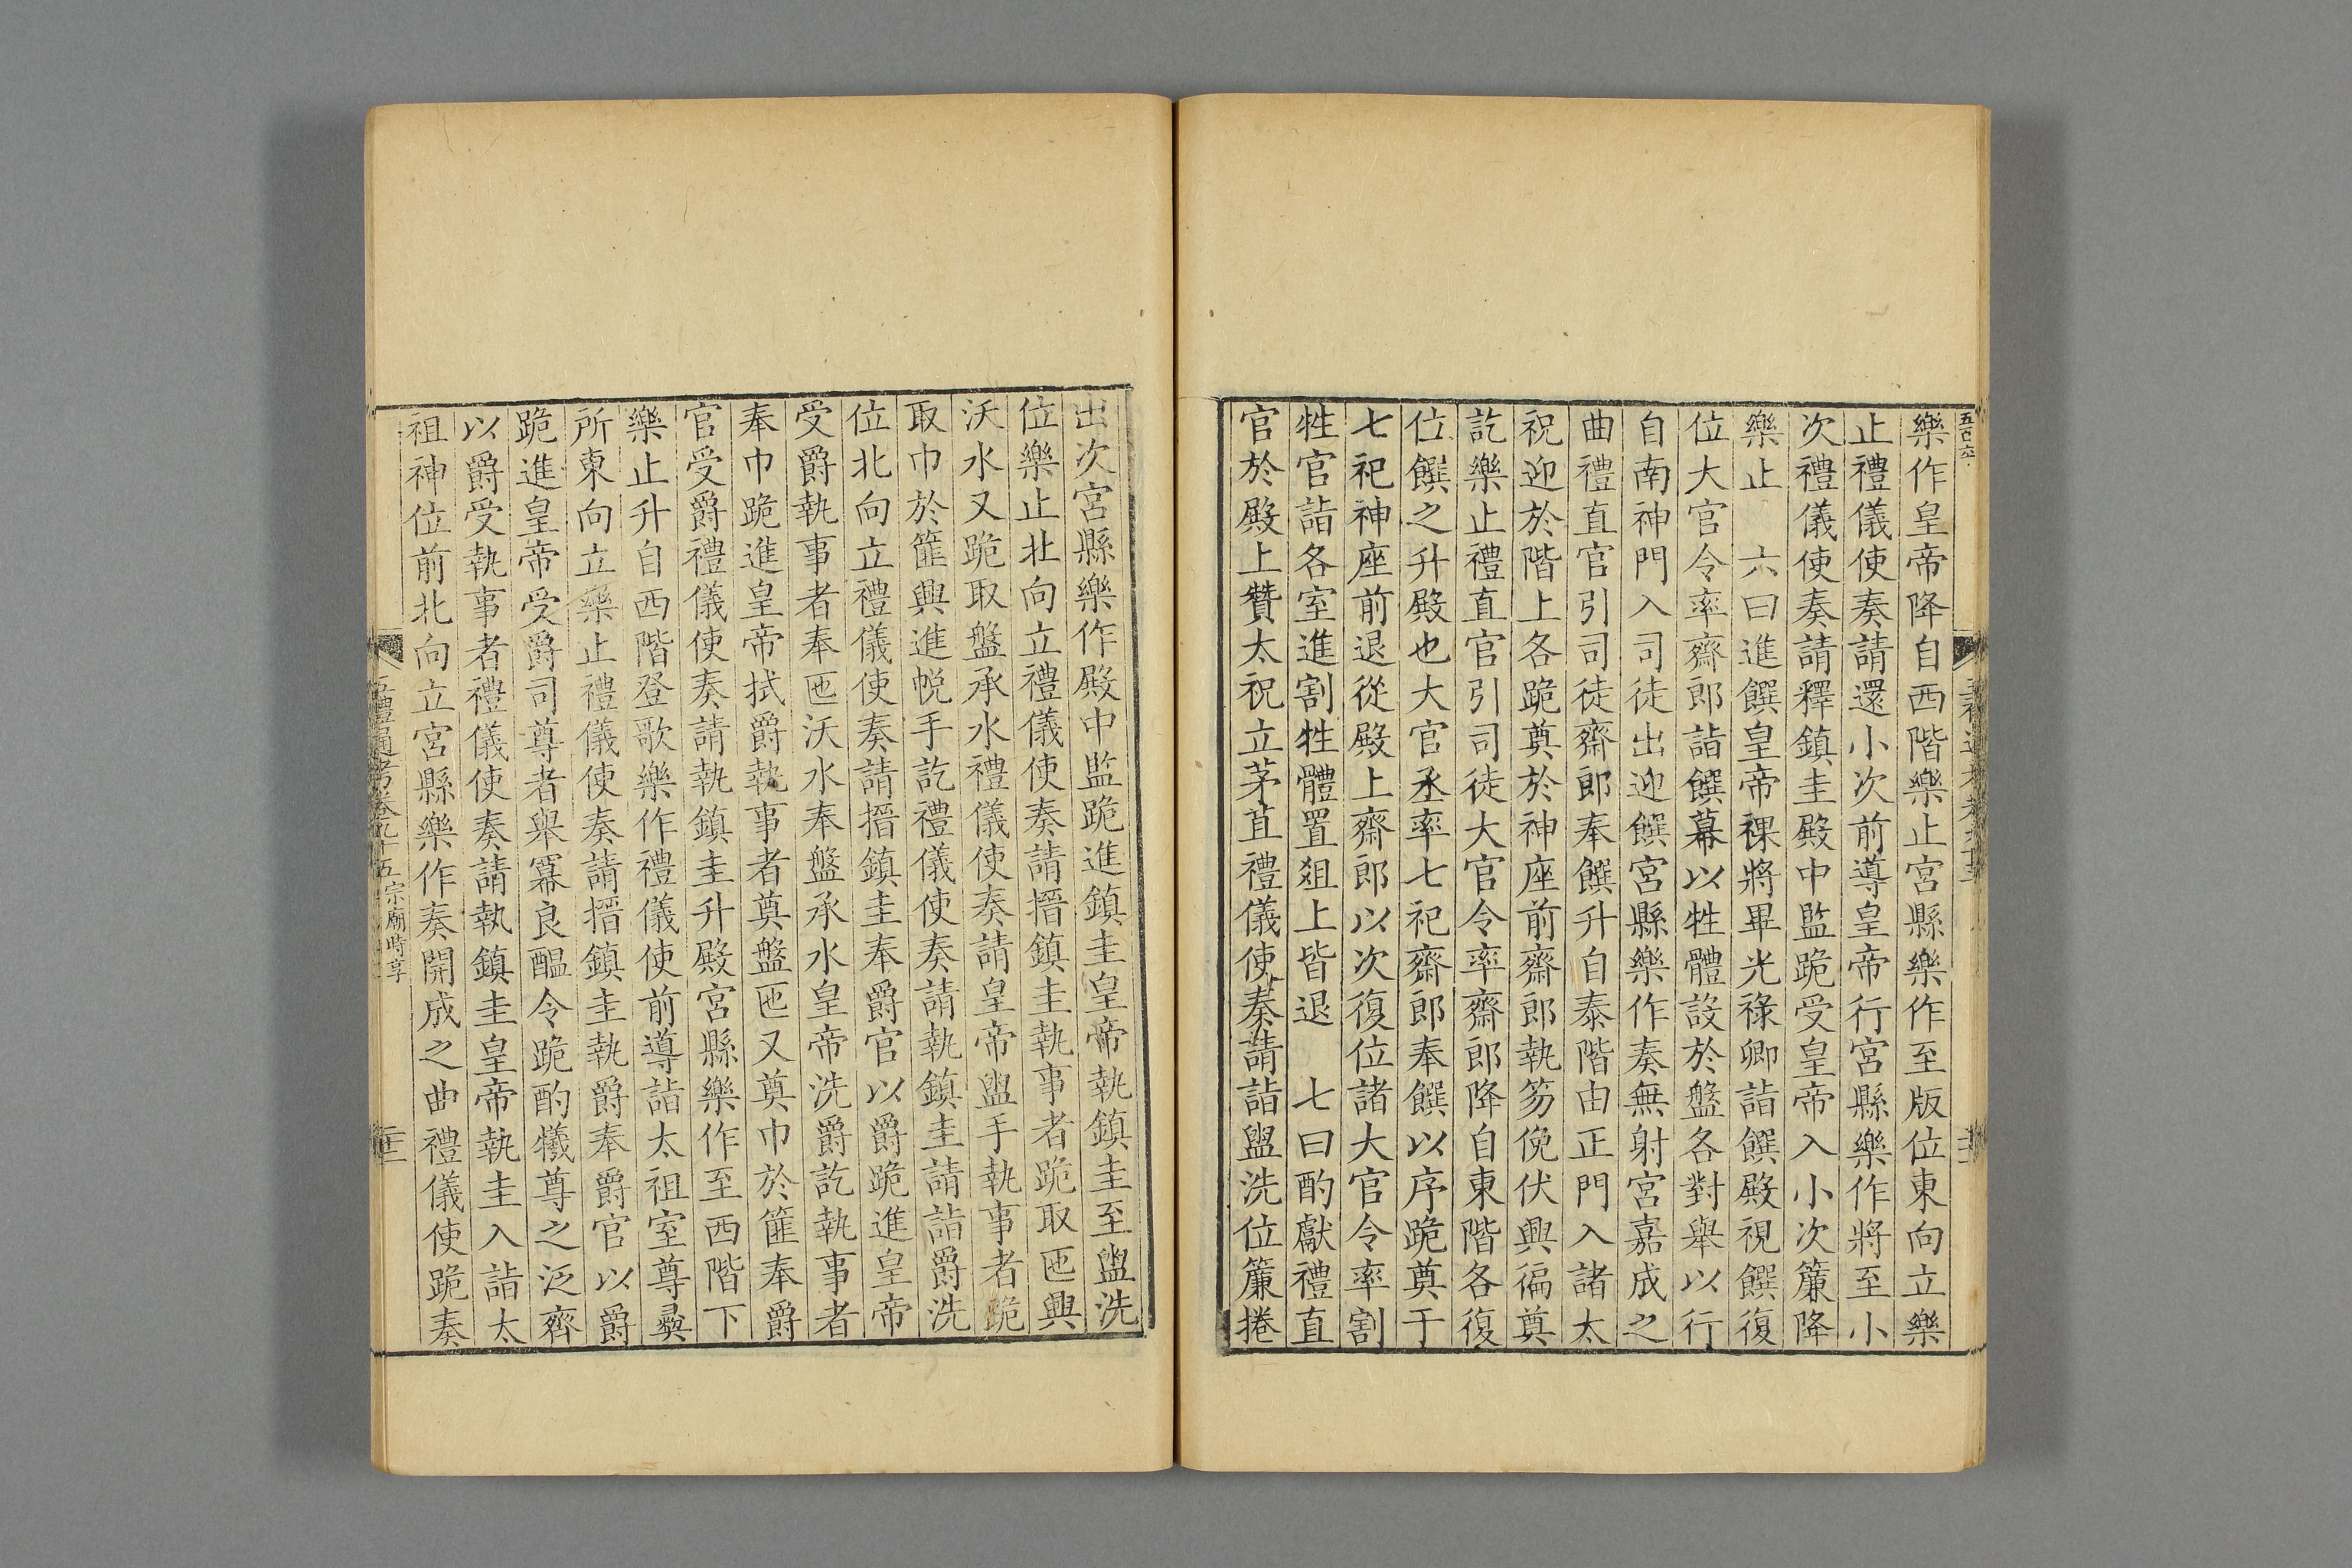 樂作皇帝降自西階樂止宮縣樂作至版位東向立樂
止禮儀使奏請還小次前導皇帝行宮縣樂作將至小
次禮儀使奏請釋鎮圭殿中監跪受皇帝入小次簾降
樂止　六曰進饌皇帝祼將畢光祿卿詣饌殿視饌復
位大官令率齋郎詣饌幕以牲體設於盤各對舉以行
自南神門入司徒出迎饌宮縣樂作奏無射宮嘉成之
曲禮直官引司徒齋郎奉饌升自泰階由正門入諸太
祝迎於階上各跪奠於神座前齋郎執笏俛伏興徧奠
訖樂止禮直官引司徒大官令率齋郎降自東階各復
位饌之升殿也大官丞率七祀齋郎奉饌以序跪奠于
七祀神座前退從殿上齋郎以次復位諸大官令率割
牲官詣各室進割牲體置俎上皆退　七曰酌獻禮直
官於殿上贊太祝立茅苴禮儀使奏請詣盥洗位簾捲
出次宮縣樂作殿中監跪進鎮圭皇帝執鎮圭至盥洗
位樂止北向立禮儀使奏請搢鎮圭執事者跪取匜興
沃水又跪取盤承水禮儀使奏請皇帝盥手執事者跪
取巾於篚興進帨手訖禮儀使奏請執鎮圭請詣爵洗
位北向立禮儀使奏請搢鎮圭奉爵官以爵跪進皇帝
受爵執事者奉匜沃水奉盤承水皇帝洗爵訖執事者
奉巾跪進皇帝拭爵執事者奠盤匜又奠巾於篚奉爵
官受爵禮儀使奏請執鎮圭升殿宮縣樂作至西階下
樂止升自西階登歌樂作禮儀使前導詣太祖室尊彝
所東向立樂止禮儀使奏請搢鎮圭執爵奉爵官以爵
跪進皇帝受爵司尊者舉冪良醞令跪酌犧尊之泛齊
以爵受執事者禮儀使奏請執鎮圭皇帝執圭入詣太
祖神位前北向立宮縣樂作奏開成之曲禮儀使跪奏
五禮通考卷九十五 宗廟時享